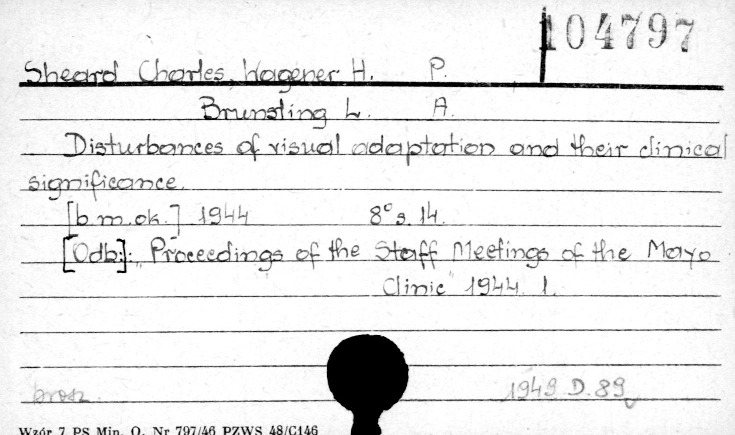 104797
Sheard Charles, Wagener H. P.
Brunsting L. A.
Disturbances of visual adaptation and their clinical
significance.
[b.m.ok.] 1944 8° s. 14.
[Odb:]: „Proceedings of the Staff Meetings of the Mayo
Clinic” 1944. 1.
brosz. 1949 D. 89
Wzór 7 PS Min. O. Nr 797/46 PZWS 48/C146